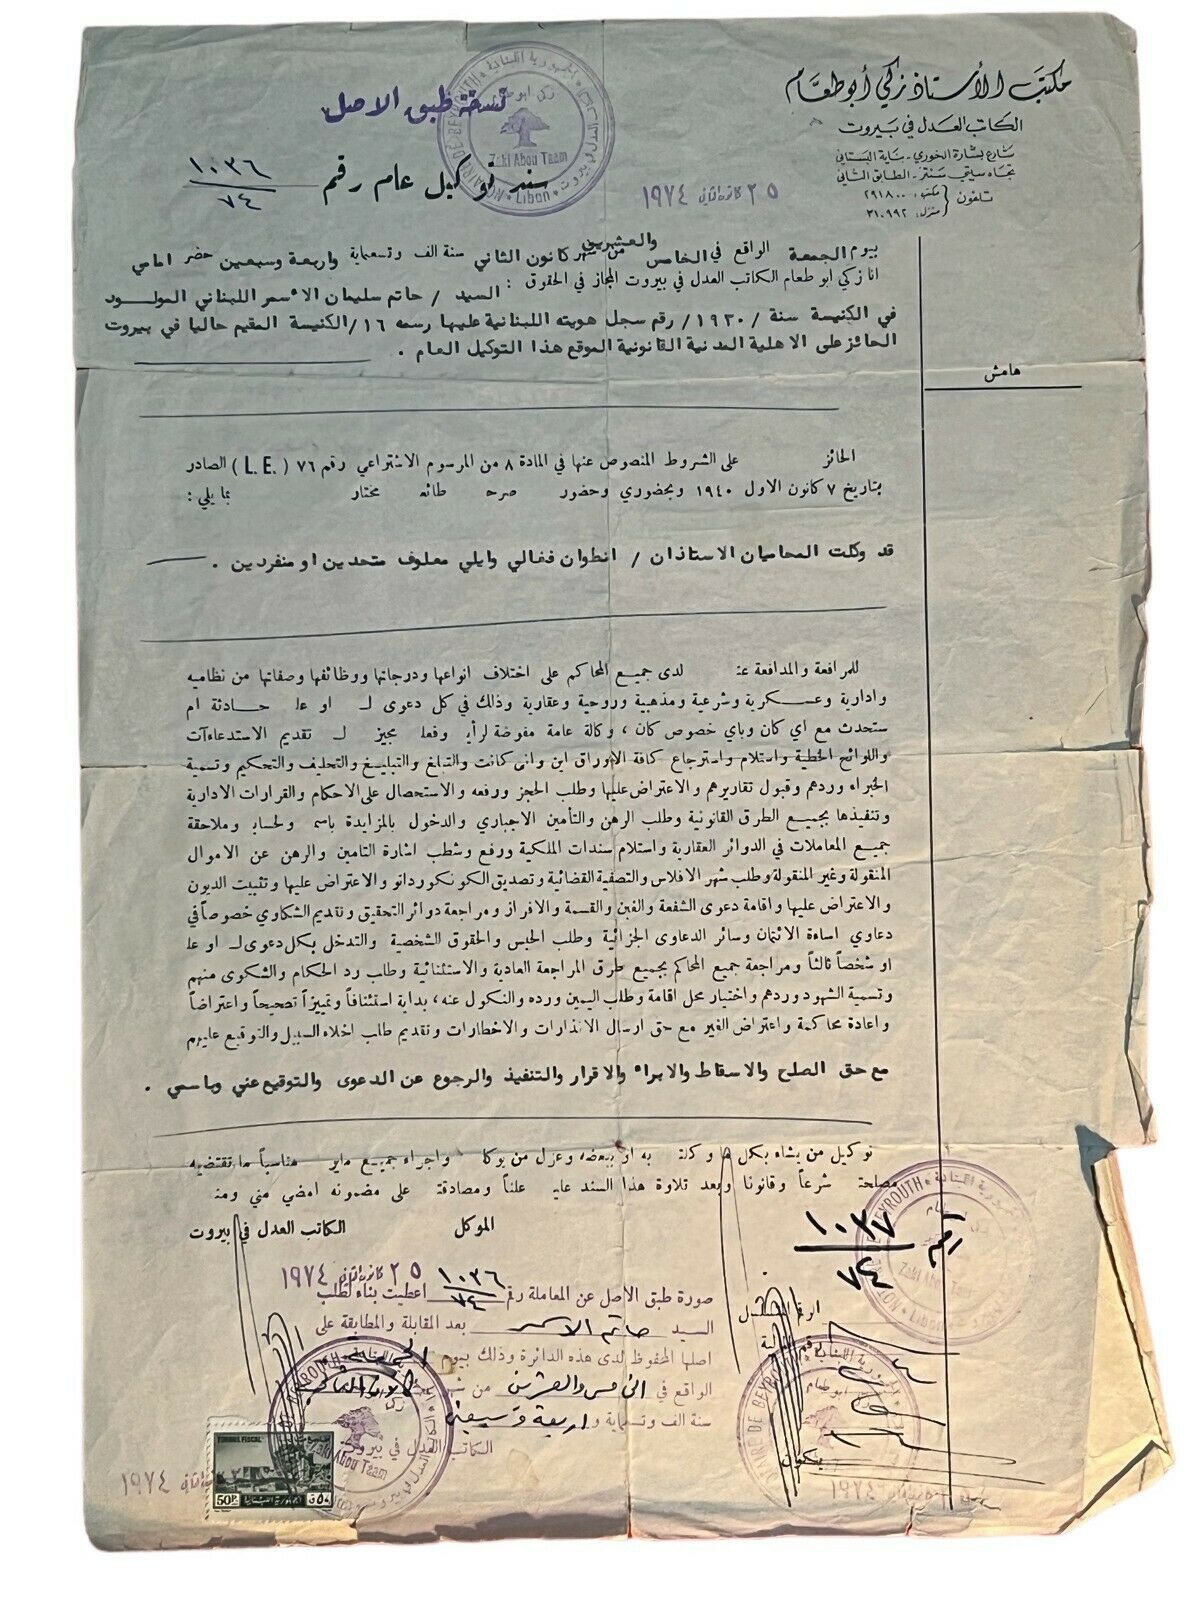 مكتب الأستاذ زكي أبو طعّام
الكاتب العدل في بيروت
شارع بشارة الخوري - بناية البستاني
تجاه سيتي سنتر - الطابق الثاني
تلفون
مكتب: ٢٩١٨٠٠
منزل: ٣١٠٩٩٢
نسخة طبق الاصل
سند توكيل عام رقم ١٠٣٦ / ٧٤
٢٥ كانون الثاني ١٩٧٤
الجمهورية اللبنانية
زكي ابو طعام
Zaki Abou Taam
NOTAIRE DE BEYROUTH
Liban
بيوم الجمعة الواقع في الخامس والعشرين من شهر كانون الثاني سنة الف وتسعماية واربعة وسبعين حضر امامي
انا زكي ابو طعام الكاتب العدل في بيروت المجاز في الحقوق : السيد / حاتم سليمان الاسمر اللبناني المولود
في الكنيسة سنة / ١٩٣٠ / رقم سجل هويته اللبنانية عليها رسمه ١٦ / الكنيسة المقيم حاليا في بيروت
الحائز على الاهلية المدنية القانونية الموقع هذا التوكيل العام .
هامش
الحائز على الشروط المنصوص عنها في المادة ٨ من المرسوم الاشتراعي رقم ٧٦ (L.E.) الصادر
بتاريخ ٧ كانون الاول ١٩٤٠ وبحضوري وحضور صرح طائعا مختارا بما يلي :
قد وكلت المحاميان الاستاذان / انطوان فغالي وايلي معلوف متحدين او منفردين .
للمرافعة والمدافعة عن لدى جميع المحاكم على اختلاف انواعها ودرجاتها ووظائفها وصفاتها من نظاميه
وادارية وعسكرية وشرعية ومذهبية وروحية وعقارية وذلك في كل دعوى لـ او علـ حادثة ام
ستحدث مع اي كان وباي خصوص كان ، وكالة عامة مفوضة لرأيـ وفعلـ بجيز لـ تقديم الاستدعاءآت
واللوائح الخطية واستلام واسترجاع كافة الاوراق اين وانى كانت والتبلغ والتبليغ والتحليف والتحكيم وتسمية
الخبراء وردهم وقبول تقاريرهم والاعتراض عليها وطلب الحجز ورفعه والاستحصال على الاحكام والقرارات الادارية
وتنفيذها بجميع الطرق القانونية وطلب الرهن والتأمين الاجباري والدخول بالمزايدة باسم ولحساب وملاحقة
جميع المعاملات في الدوائر العقارية واستلام سندات الملكية ورفع وشطب اشارة التامين والرهن عن الاموال
المنقولة وغير المنقولة وطلب شهر الافلاس والتصفية القضائية وتصديق الكونكورداتو والاعتراض عليها وتثبيت الديون
والاعتراض عليها واقامة دعوى الشفعة والغبن والقسمة والافراز ومراجعة دوائر التحقيق وتقديم الشكاوي خصوصاً في
دعاوي اساءة الائتمان وسائر الدعاوى الجزائية وطلب الحبس والحقوق الشخصية والتدخل بكل دعوى لـ او علـ
او شخصاً ثالثاً ومراجعة جميع المحاكم بجميع طرق المراجعة العادية والاستثنائية وطلب رد الحكام والشكوى منهم
وتسمية الشهود وردهم واختيار محل اقامة وطلب اليمين ورده والنكول عنه ، بداية استئنافاً وتمييزاً تصحيحاً واعتراضاً
واعادة محاكمة واعتراض الغير مع حق ارسال الانذارات والاخطارات وتقديم طلب اخلاء السبيل والتوقيع عليهم
مع حق الصلح والاسقاط والابراء والاقرار والتنفيذ والرجوع عن الدعوى والتوقيع عني وباسمي .
توكيل من يشاء بكل ما وكلت به او ببعضه وعزل من يوكله واجراء جميع ما يراه مناسباً ما تقتضيه
مصلحة شرعاً وقانونا وبعد تلاوة هذا السند عليه علناً ومصادقته على مضمونه امضي مني ومنه
الموكل
الكاتب العدل في بيروت
رقم ١٠٣٧ / ٧٤
٢٥ كانون الثاني ١٩٧٤
صورة طبق الأصل عن المعاملة رقم ١٠٣٦ / ٧٤ اعطيت بناء لطلب
السيد حاتم الاسمر بعد المقابلة والمطابقة على
اصلها المحفوظ لدى هذه الدائرة وذلك بيوم الجمعة
الواقع في الخامس والعشرين من شهر كانون الثاني
سنة الف وتسعماية و اربعة وسبعين
الكاتب العدل في بيروت
TIMBRE FISCAL
50P.
٥٠ق
الجمهورية اللبنانية
١٩٧٤